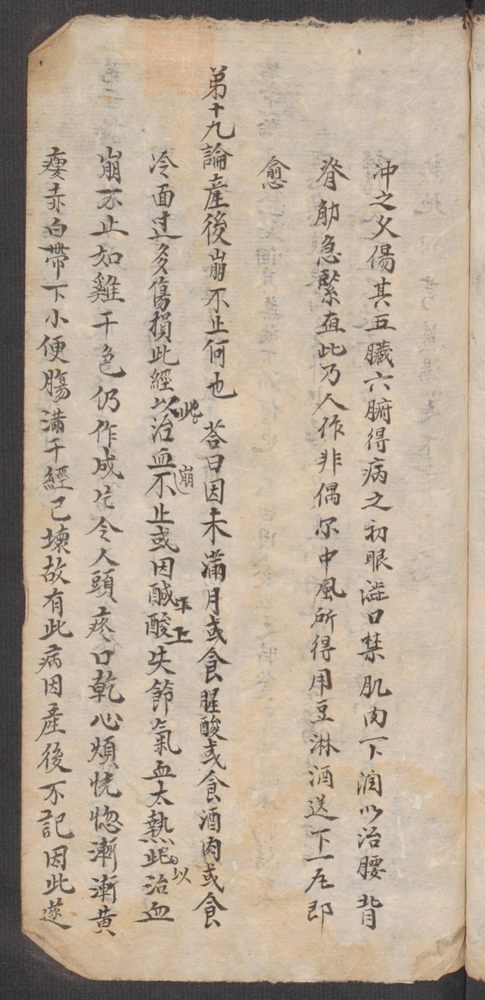 冲之久傷其五臟六腑得病之初眼澁口禁肌肉下润以治腰背
脊觔急緊直此乃人作非偶尔中風所得用豆淋酒送下一尤即
愈
弟十九論產後崩不止何也 答曰因未滿月或食腥酸或食酒肉或食
冷面过多傷損此經以此治血崩不止或因醎酸失節氣血太熱此以治血
崩不止如雞干色仍作成片令人頭疼口乾心煩恍惚漸漸黄
瘦赤白帶下小便膓滿千經已壞故有此病因產後不記因此遂